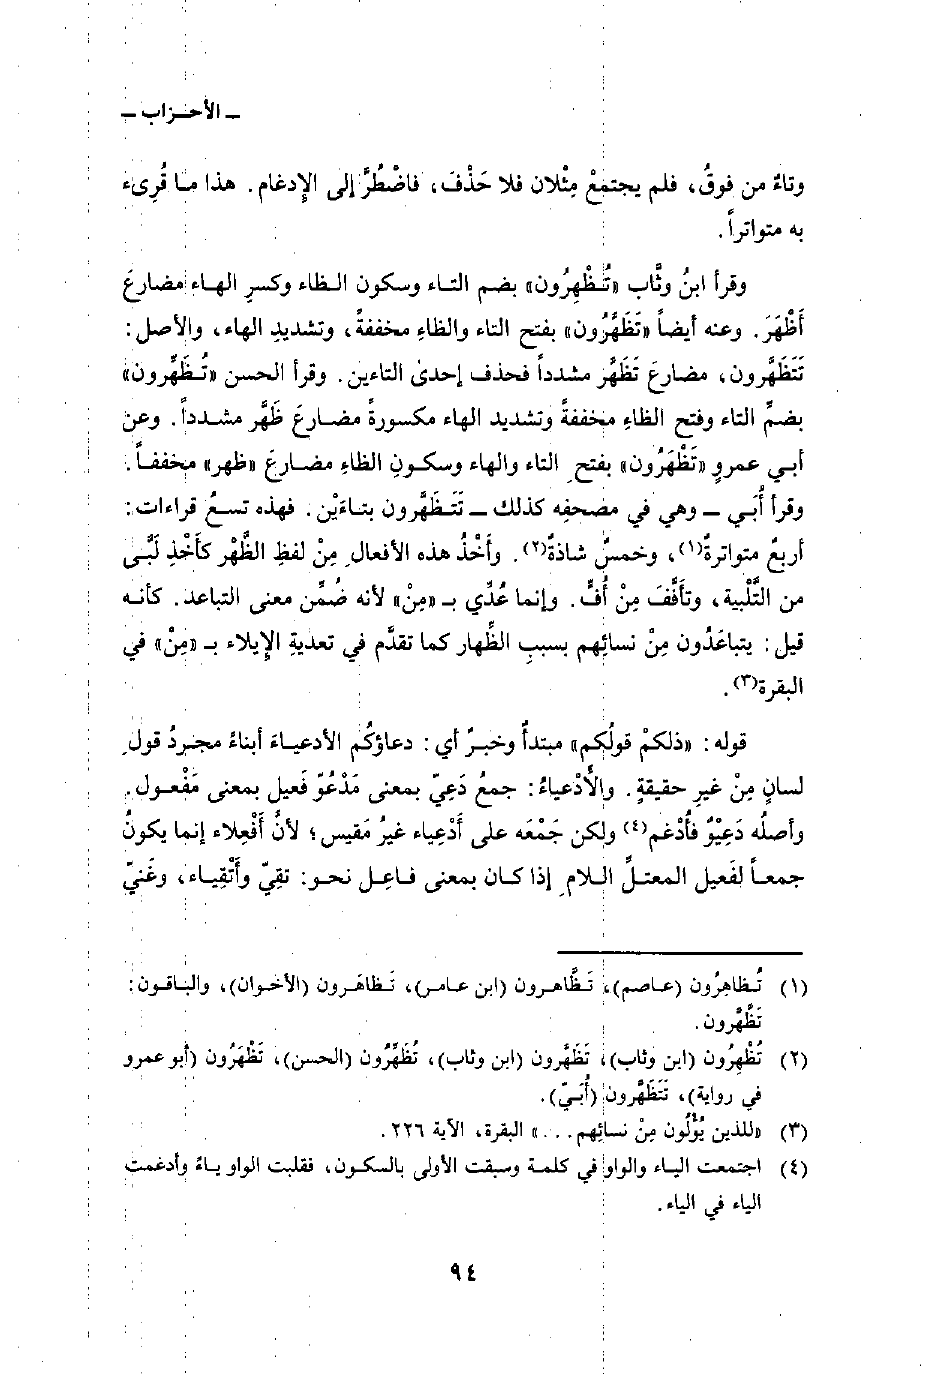 ـ الأحـزاب ـ
وتاءٌ من فوقُ، فلم يجتمعْ مِثْلان فلا حَذْفَ، فاضْطُرَّ إلى الإِدغام. هذا ما قُرِىء
به متواتراً.
وقرأ ابنُ وثَّاب «تُظْهِرُون» بضم التاء وسكون الظاء وكسرِ الهاء مضارعَ
أَظْهَرَ. وعنه أيضاً «تَظَهَّرُون» بفتح التاء والظاءِ مخففةً، وتشديدِ الهاء، والأصل:
تَتَظَهَّرون، مضارعَ تَظَهَّر مشدداً فحذف إحدى التاءين. وقرأ الحسن «تُظَهِّرون»
بضمِّ التاء وفتح الظاءِ مخففةً وتشديد الهاء مكسورةً مضارعَ ظَهَّر مشدداً. وعن
أبي عمروٍ «تَظْهَرُون» بفتحِ التاء والهاء وسكونِ الظاءِ مضارعَ «ظهر» مخففاً.
وقرأ أُبَي ـ وهي في مصحفِه كذلك ـ تَتَظَهَّرون بتاءَيْن. فهذه تسعُ قراءات:
أربعٌ متواترةٌ(١)، وخمسٌ شاذةٌ(٢). وأَخْذُ هذه الأفعالِ مِنْ لفظِ الظَّهْر كأَخْذِ لَبَّى
من التَّلْبية، وتأَفَّفَ مِنْ أُفٍّ. وإنما عُدِّي بـ «مِنْ» لأنه ضُمِّن معنى التباعد. كأنه
قيل: يتباعَدُون مِنْ نسائِهم بسببِ الظِّهار كما تقدَّم في تعديةِ الإِيلاء بـ «مِنْ» في
البقرة(٣).
قوله: «ذلكمْ قولُكم» مبتدأٌ وخبرٌ أي: دعاؤكُم الأدعياءَ أبناءً مجردُ قولِ
لسانٍ مِنْ غيرِ حقيقةٍ. والأَدْعياءُ: جمعُ دَعِيّ بمعنى مَدْعُوّ فَعيل بمعنى مَفْعول.
وأصلُه دَعِيْوٌ فأُدْغم(٤) ولكن جَمْعَه على أَدْعِياء غيرُ مَقيس؛ لأنَّ أَفْعِلاء إنما يكونُ
جمعاً لفَعيل المعتلِّ اللامِ إذا كان بمعنى فاعِل نحو: تقِيّ وأَتْقِياء، وغَنيّ
(١) تُظاهِرُون (عاصم)، تَظَّاهرون (ابن عامر)، تَظاهَرون (الأخوان)، والباقون:
تَظَّهَّرون.
(٢) تُظْهِرُون (ابن وثاب)، تَظَهَّرون (ابن وثاب)، تُظَهِّرُون (الحسن)، تَظْهَرُون (أبو عمرو
في رواية)، تَتَظَهَّرون (أُبَيّ).
(٣) «للذين يُؤْلُون مِنْ نسائِهم...» البقرة، الآية ٢٢٦.
(٤) اجتمعت الياء والواو في كلمة وسبقت الأولى بالسكون، فقلبت الواو ياءً وأدغمت
الياء في الياء.
٩٤